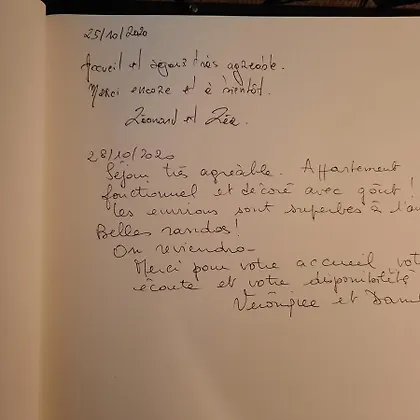 25/10/2020
Accueil et séjour très agréable.
Merci encore et à bientôt.
Léonard et Léa.
28/10/2020
Séjour très agréable. Appartement
fonctionnel et décoré avec goût !
Les environs sont superbes à l'a
Belles randos !
On reviendra
Merci pour votre accueil vot
écoute et votre disponibilité
Véronique et